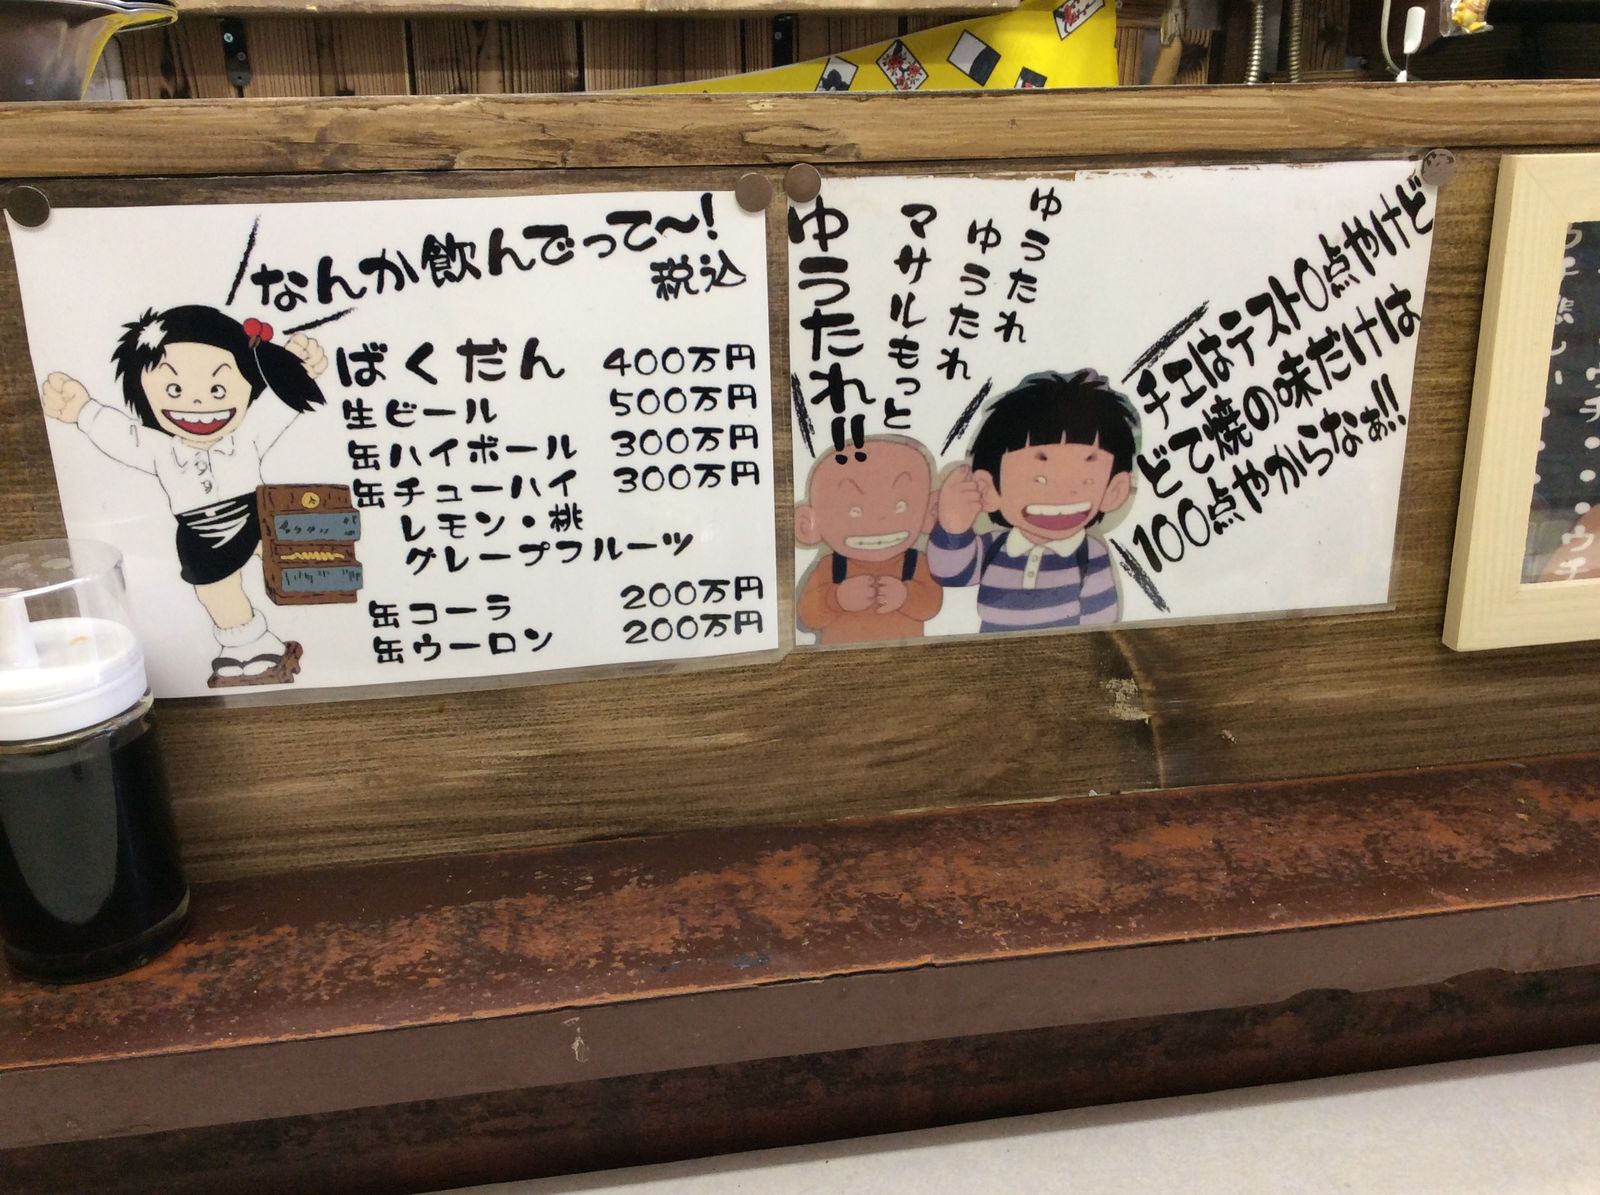 なんか飲んでって〜!
税込
ばくだん 400万円
生ビール 500万円
缶ハイボール 300万円
缶チューハイ 300万円
レモン・桃
グレープフルーツ
缶コーラ 200万円
缶ウーロン 200万円
ゆうたれ
ゆうたれ
マサルもっと
ゆうたれ!!
チエはテスト〇点やけど
どて焼の味だけは
100点やからなぁ!!